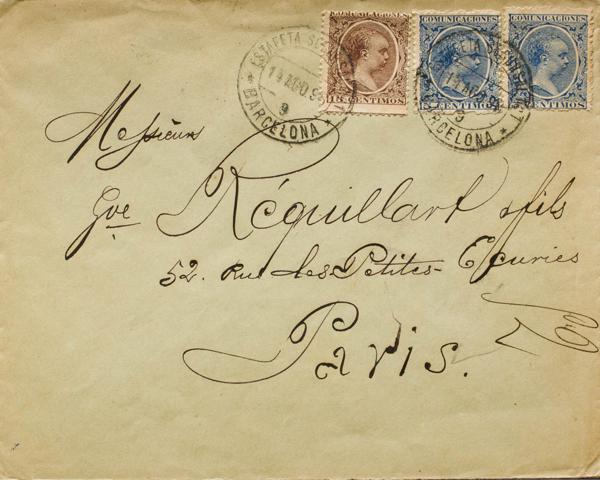 COMUNICACIONES COMUNICACIONES COMUNICACIONES
15 CENTIMOS CENTIMOS CENTIMOS
ESTAFETA
BARCELONA
9
BARCELONA
9
Messieurs
Gve Réquillart & fils
52. Rue des Petites Ecuries
Paris.